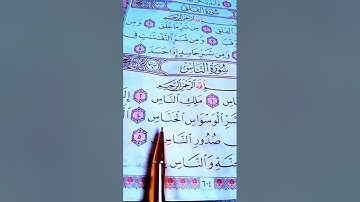 سُورَةُ الْفَلَقِ
بِسْمِ اللَّهِ الرَّحْمَٰنِ الرَّحِيمِ
الْفَلَقِ ١ مِن شَرِّ مَا خَلَقَ ٢ وَمِن
وَقَبَ ٣ وَمِن شَرِّ النَّفَّٰثَٰتِ فِي
وَمِن شَرِّ حَاسِدٍ إِذَا حَسَدَ ٥
سُورَةُ النَّاسِ
بِسْمِ اللَّهِ الرَّحْمَٰنِ الرَّحِيمِ
١ مَلِكِ النَّاسِ ٢
شَرِّ الْوَسْوَاسِ الْخَنَّاسِ ٤
صُدُورِ النَّاسِ ٥
وَالنَّاسِ
٦٠٤